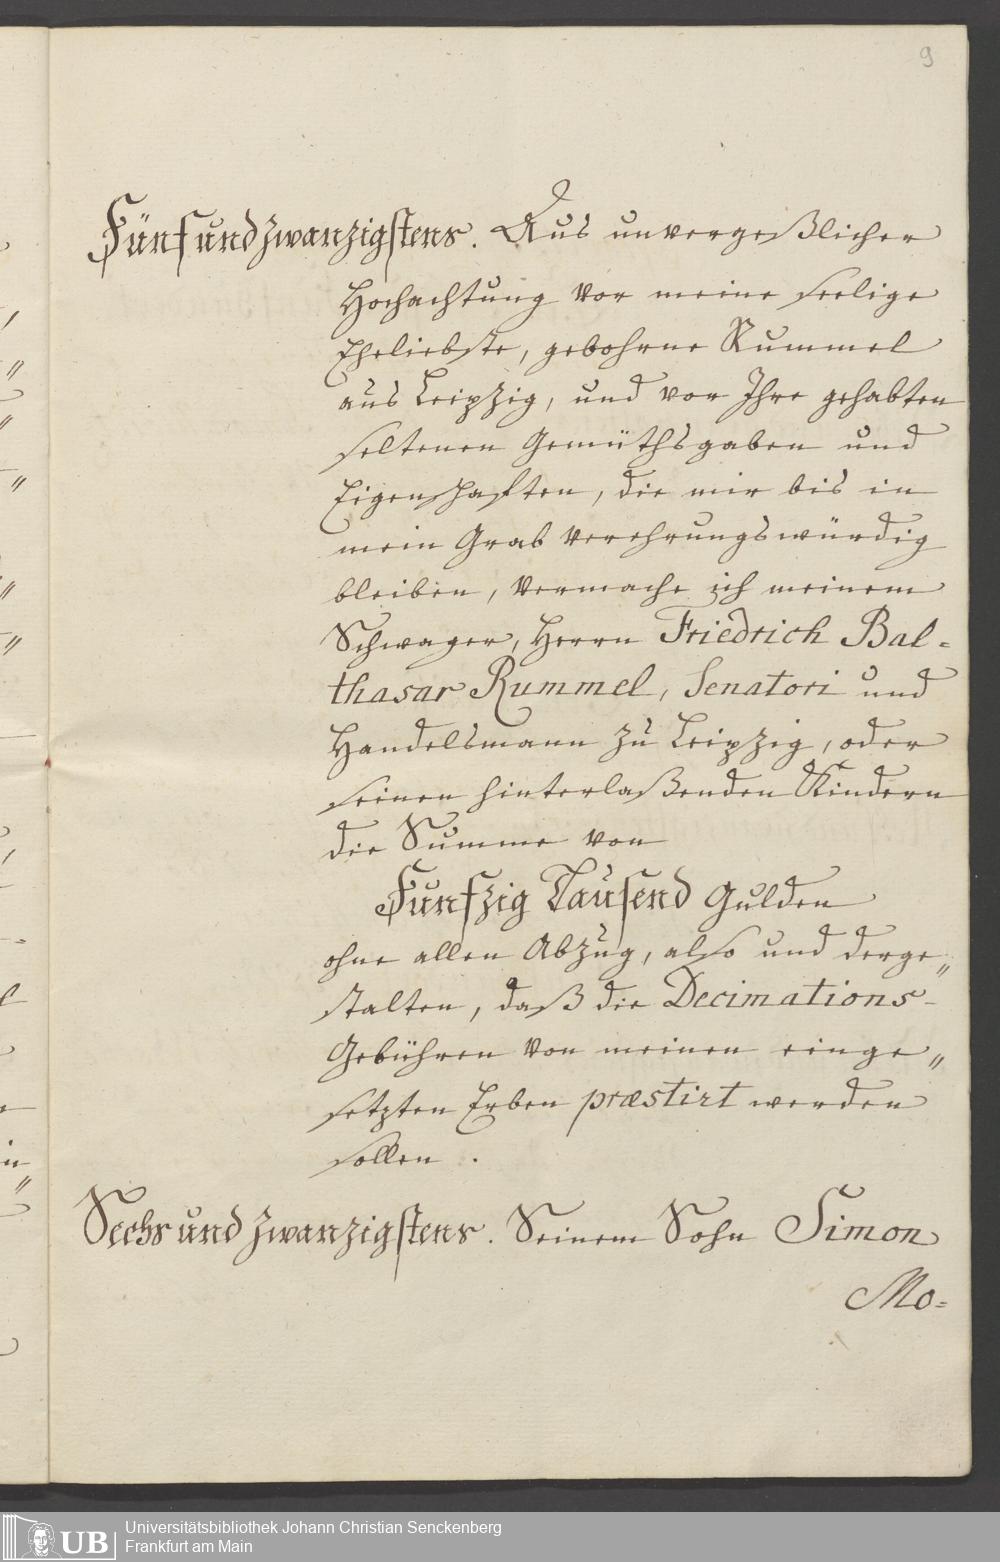 9
Fünf und zwanzigstens. Aus unvergeßlicher
Hochachtung vor meine seelige
Eheliebste, gebohrne Rummel
aus Leipzig, und vor Ihre gehabten
seltenen Gemüthsgaben und
Eigenschafften, die mir bis in
mein Grab verehrungswürdig
bleiben, vermache ich meinem
Schwager, Herrn Friedrich Bal-
thasar Rummel, Senatori und
Handelsmann zu Leipzig, oder
seinen hinterlaßenden Kindern
die Summe von
Funfzig Tausend Gulden
ohne allen Abzug, also und derge„
stalten, daß die Decimations-
Gebühren von meinen einge„
setzten Erben præstirt werden
sollen.
Sechs und zwanzigstens. Seinem Sohn Simon
Mo-
UB
Universitätsbibliothek Johann Christian Senckenberg
Frankfurt am Main